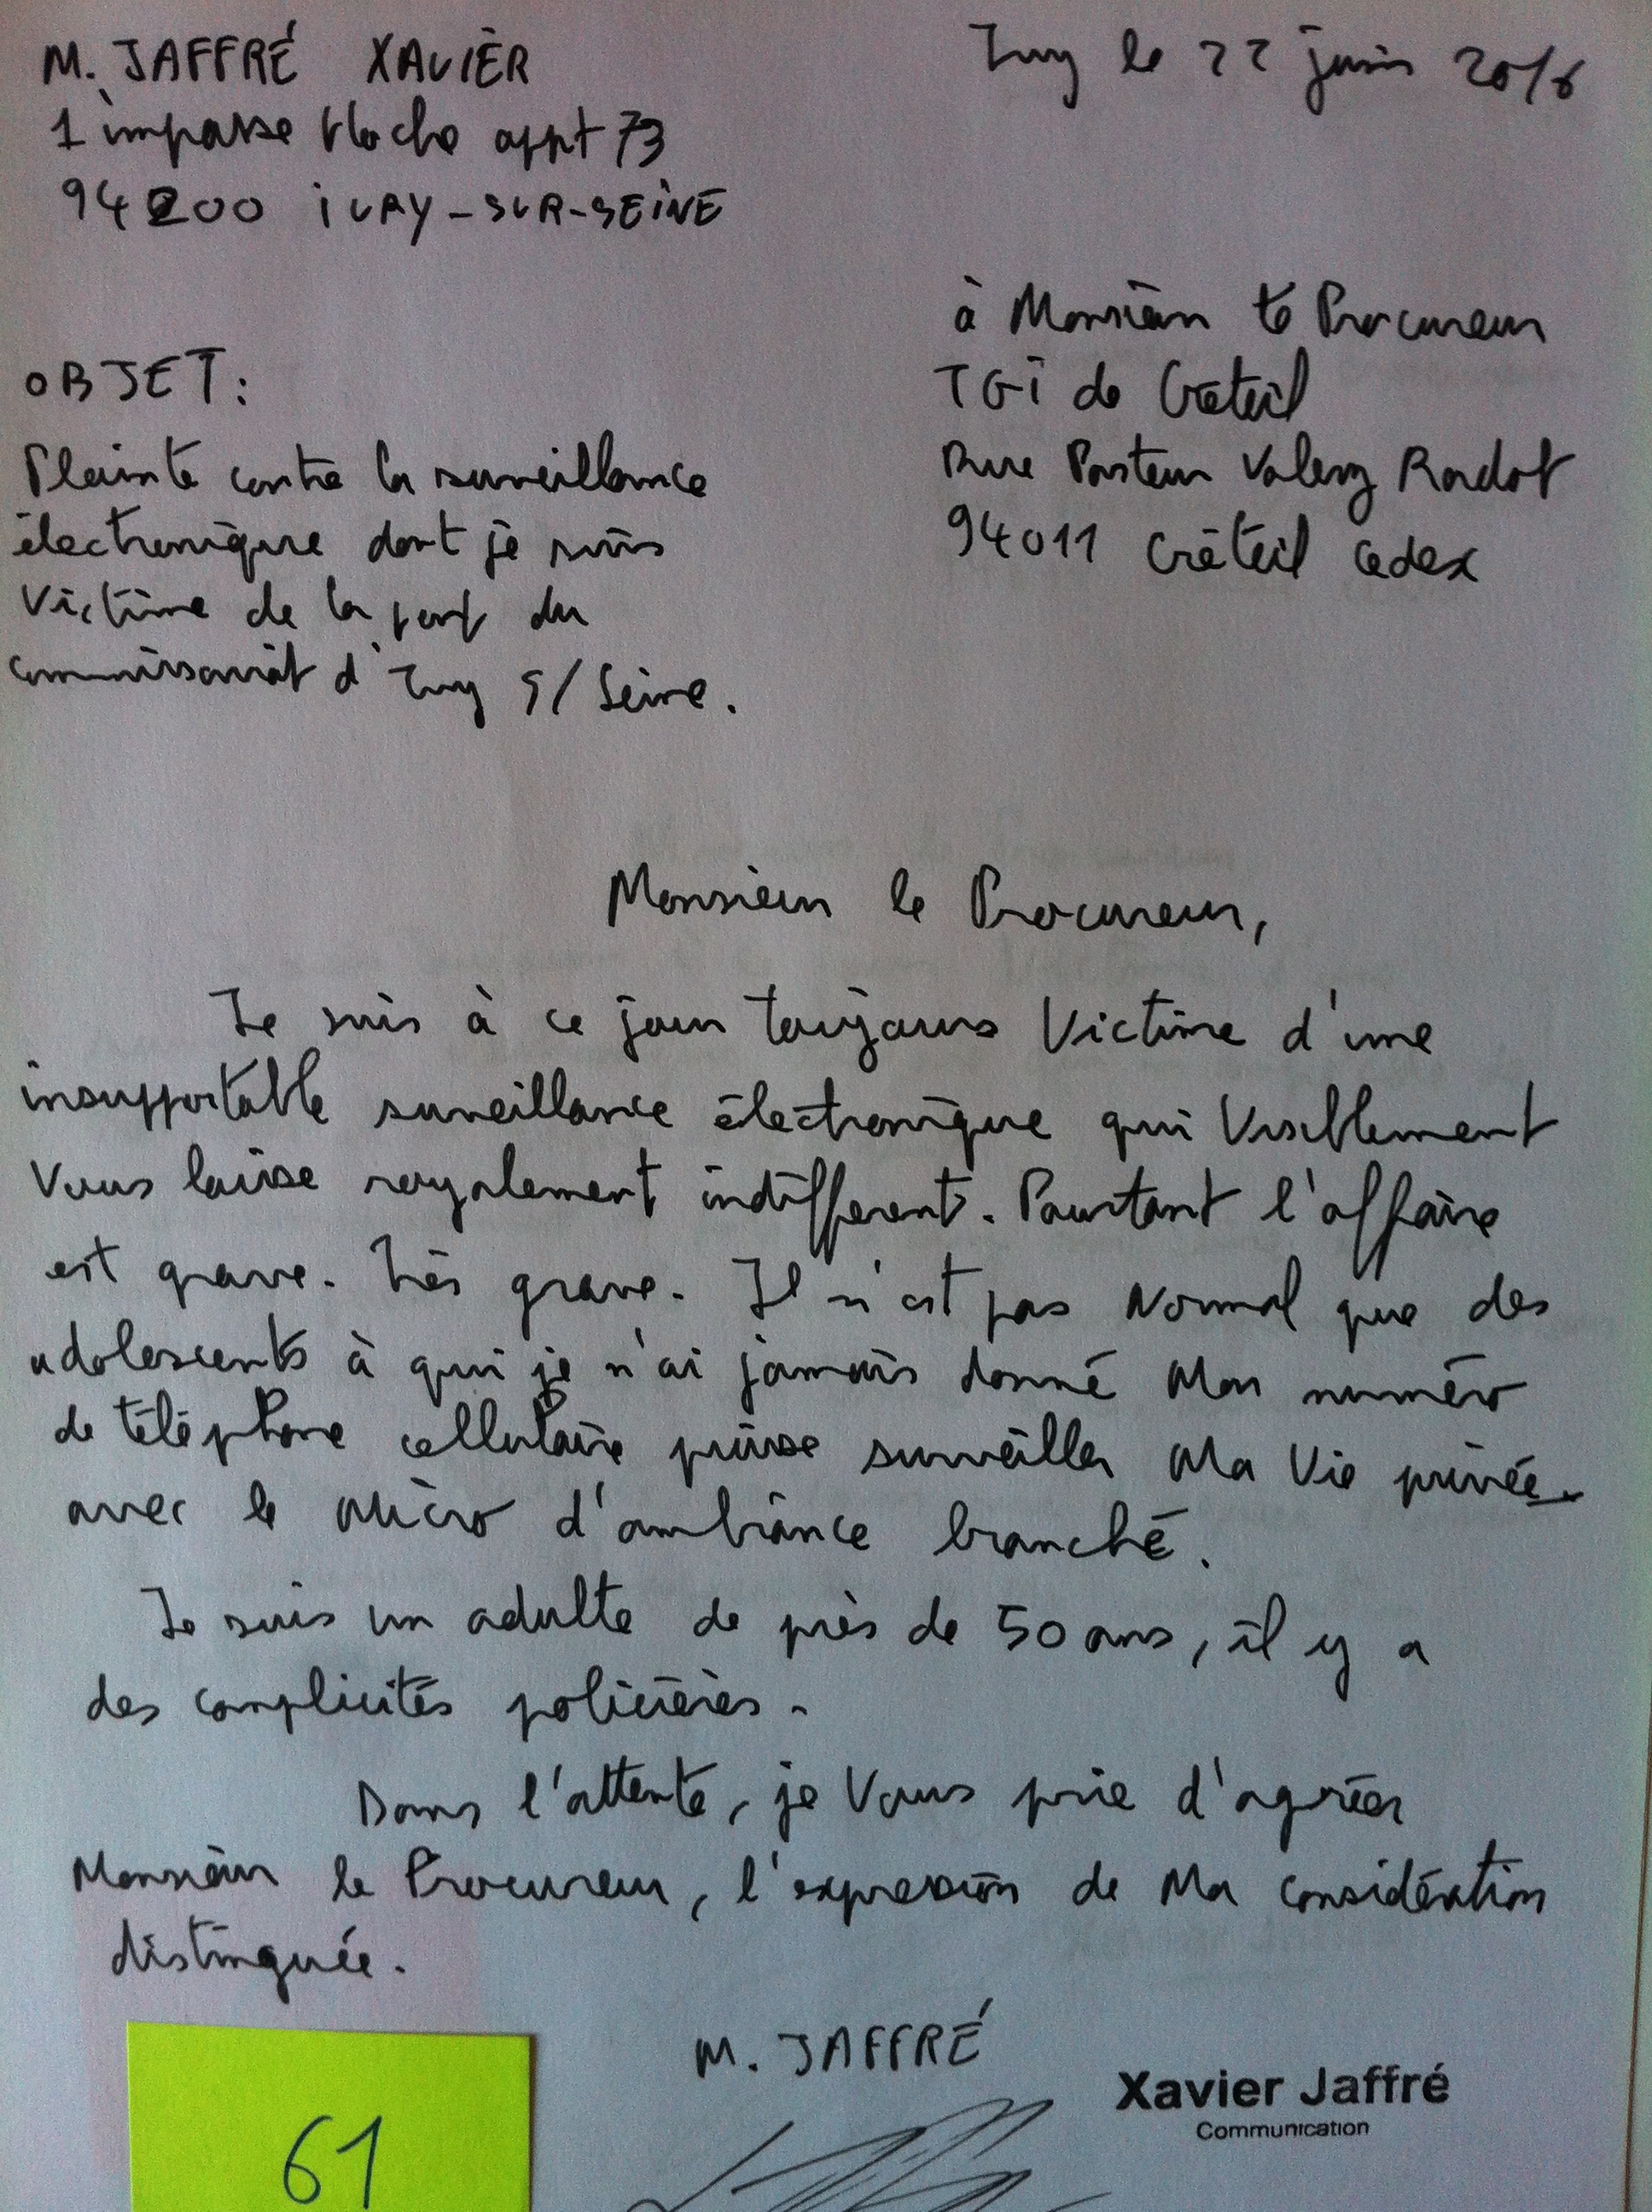 M. JAFFRÉ XAVIER
1 impasse Hoche appt 73
94200 IVRY-SUR-SEINE
Ivry le 22 juin 2016
à Monsieur le Procureur
TGI de Créteil
Rue Pasteur Valery Radot
94011 Créteil Cedex
OBJET:
Plainte contre la surveillance
électronique dont je suis
victime de la part du
commissariat d'Ivry S/Seine.
Monsieur le Procureur,
Je suis à ce jour toujours victime d'une
insupportable surveillance électronique qui visiblement
vous laisse royalement indifférent. Pourtant l'affaire
est grave. Très grave. Il n'est pas normal que des
adolescents à qui je n'ai jamais donné mon numéro
de téléphone cellulaire puisse surveiller ma vie privée
avec le micro d'ambiance branché.
Je suis un adulte de près de 50 ans, il y a
des complicités policières.
Dans l'attente, je vous prie d'agréer
Monsieur le Procureur, l'expression de ma considération
distinguée.
M. JAFFRÉ
Xavier Jaffré
Communication
61